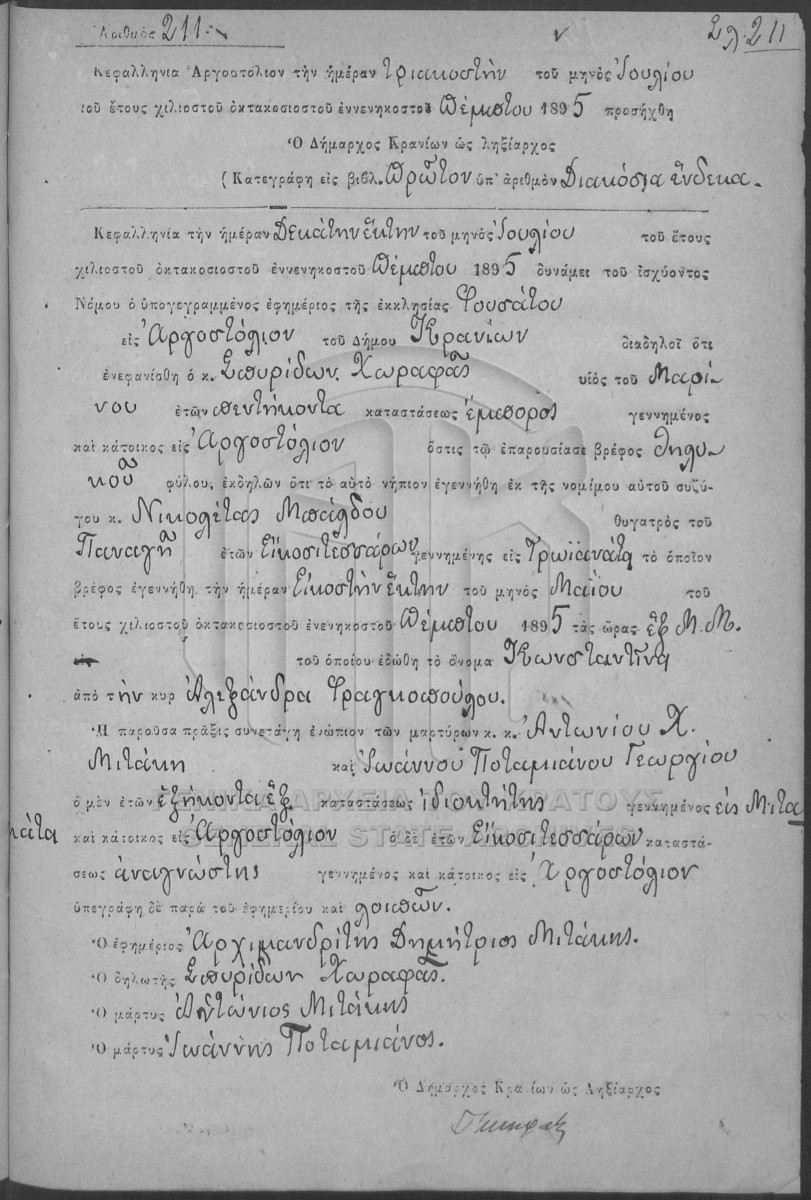 Ἀριθμὸς 211.
Σλ. 211
Κεφαλληνία Ἀργοστόλιον τὴν ἡμέραν τριακοστὴν τοῦ μηνὸς Ἰουλίου
τοῦ ἔτους χιλιοστοῦ ὀκτακοσιοστοῦ ἐννενηκοστοῦ Πέμπτου 1895 προσήχθη
Ὁ Δήμαρχος Κρανίων ὡς ληξίαρχος
(Κατεγράφη εἰς βιβλ. Πρῶτον ὑπ' ἀριθμὸν Διακόσια ἕνδεκα.
Κεφαλληνία τὴν ἡμέραν Δεκάτην ἕκτην τοῦ μηνὸς Ἰουλίου τοῦ ἔτους
χιλιοστοῦ ὀκτακοσιοστοῦ ἐννενηκοστοῦ Πέμπτου 1895 δυνάμει τοῦ ἰσχύοντος
Νόμου ὁ ὑπογεγραμμένος ἐφημέριος τῆς ἐκκλησίας Φουσάτου
εἰς Ἀργοστόλιον τοῦ Δήμου Κρανίων διαδηλοῖ ὅτι
ἐνεφανίσθη ὁ κ. Σπυρίδων Χωραφᾶς υἱὸς τοῦ Μαρί-
νου ἐτῶν πεντήκοντα καταστάσεως ἔμπορος γεννημένος
καὶ κάτοικος εἰς Ἀργοστόλιον ὅστις τῷ ἐπαρουσίασε βρέφος θηλυ-
κοῦ φύλου, ἐκδηλῶν ὅτι τὸ αὐτὸ νήπιον ἐγεννήθη ἐκ τῆς νομίμου αὐτοῦ συζύ-
γου κ. Νικολέτας Μπάλδου θυγατρὸς τοῦ
Παναγῆ ἐτῶν Εἰκοσιτεσσάρων γεννημένης εἰς Τρωϊανάτα τὸ ὁποῖον
βρέφος ἐγεννήθη τὴν ἡμέραν Εἰκοστὴν ἕκτην τοῦ μηνὸς Μαΐου τοῦ
ἔτους χιλιοστοῦ ὀκτακοσιοστοῦ ἐνενηκοστοῦ Πέμπτου 1895 τὰς ὥρας ἓξ Μ.Μ.
τοῦ ὁποίου ἐδώθη τὸ ὄνομα Κωνσταντῖνα
ἀπὸ τὴν κυρ Ἀλεξάνδρα Φραγκοπούλου.
Ἡ παροῦσα πρᾶξις συνετάγη ἐνώπιον τῶν μαρτύρων κ. κ. Ἀντωνίου Χ.
Μιτάκη καὶ Ἰωάννου Ποταμιάνου Γεωργίου
ὁ μὲν ἐτῶν ἑξήκοντα ἓξ καταστάσεως ἰδιοκτήτης γεννημένος εἰς Μιτα
κάτα καὶ κάτοικος εἰς Ἀργοστόλιον ὁ δὲ ἐτῶν Εἰκοσιτεσσάρων καταστά-
σεως ἀναγνώστης γεννημένος καὶ κάτοικος εἰς Ἀργοστόλιον
ὑπεγράφη δὲ παρὰ τοῦ ἐφημερίου καὶ λοιπῶν.
Ὁ ἐφημέριος Ἀρχιμανδρίτης Δημήτριος Μιτάκης.
Ὁ δηλωτὴς Σπυρίδων Χωραφᾶς.
Ὁ μάρτυς Ἀντώνιος Μιτάκης
Ὁ μάρτυς Ἰωάννης Ποταμιάνος.
Ὁ Δήμαρχος Κρανίων ὡς Ληξίαρχος
ΓΕΝΙΚΑ ΑΡΧΕΙΑ ΤΟΥ ΚΡΑΤΟΥΣ
GENERAL STATE ARCHIVES